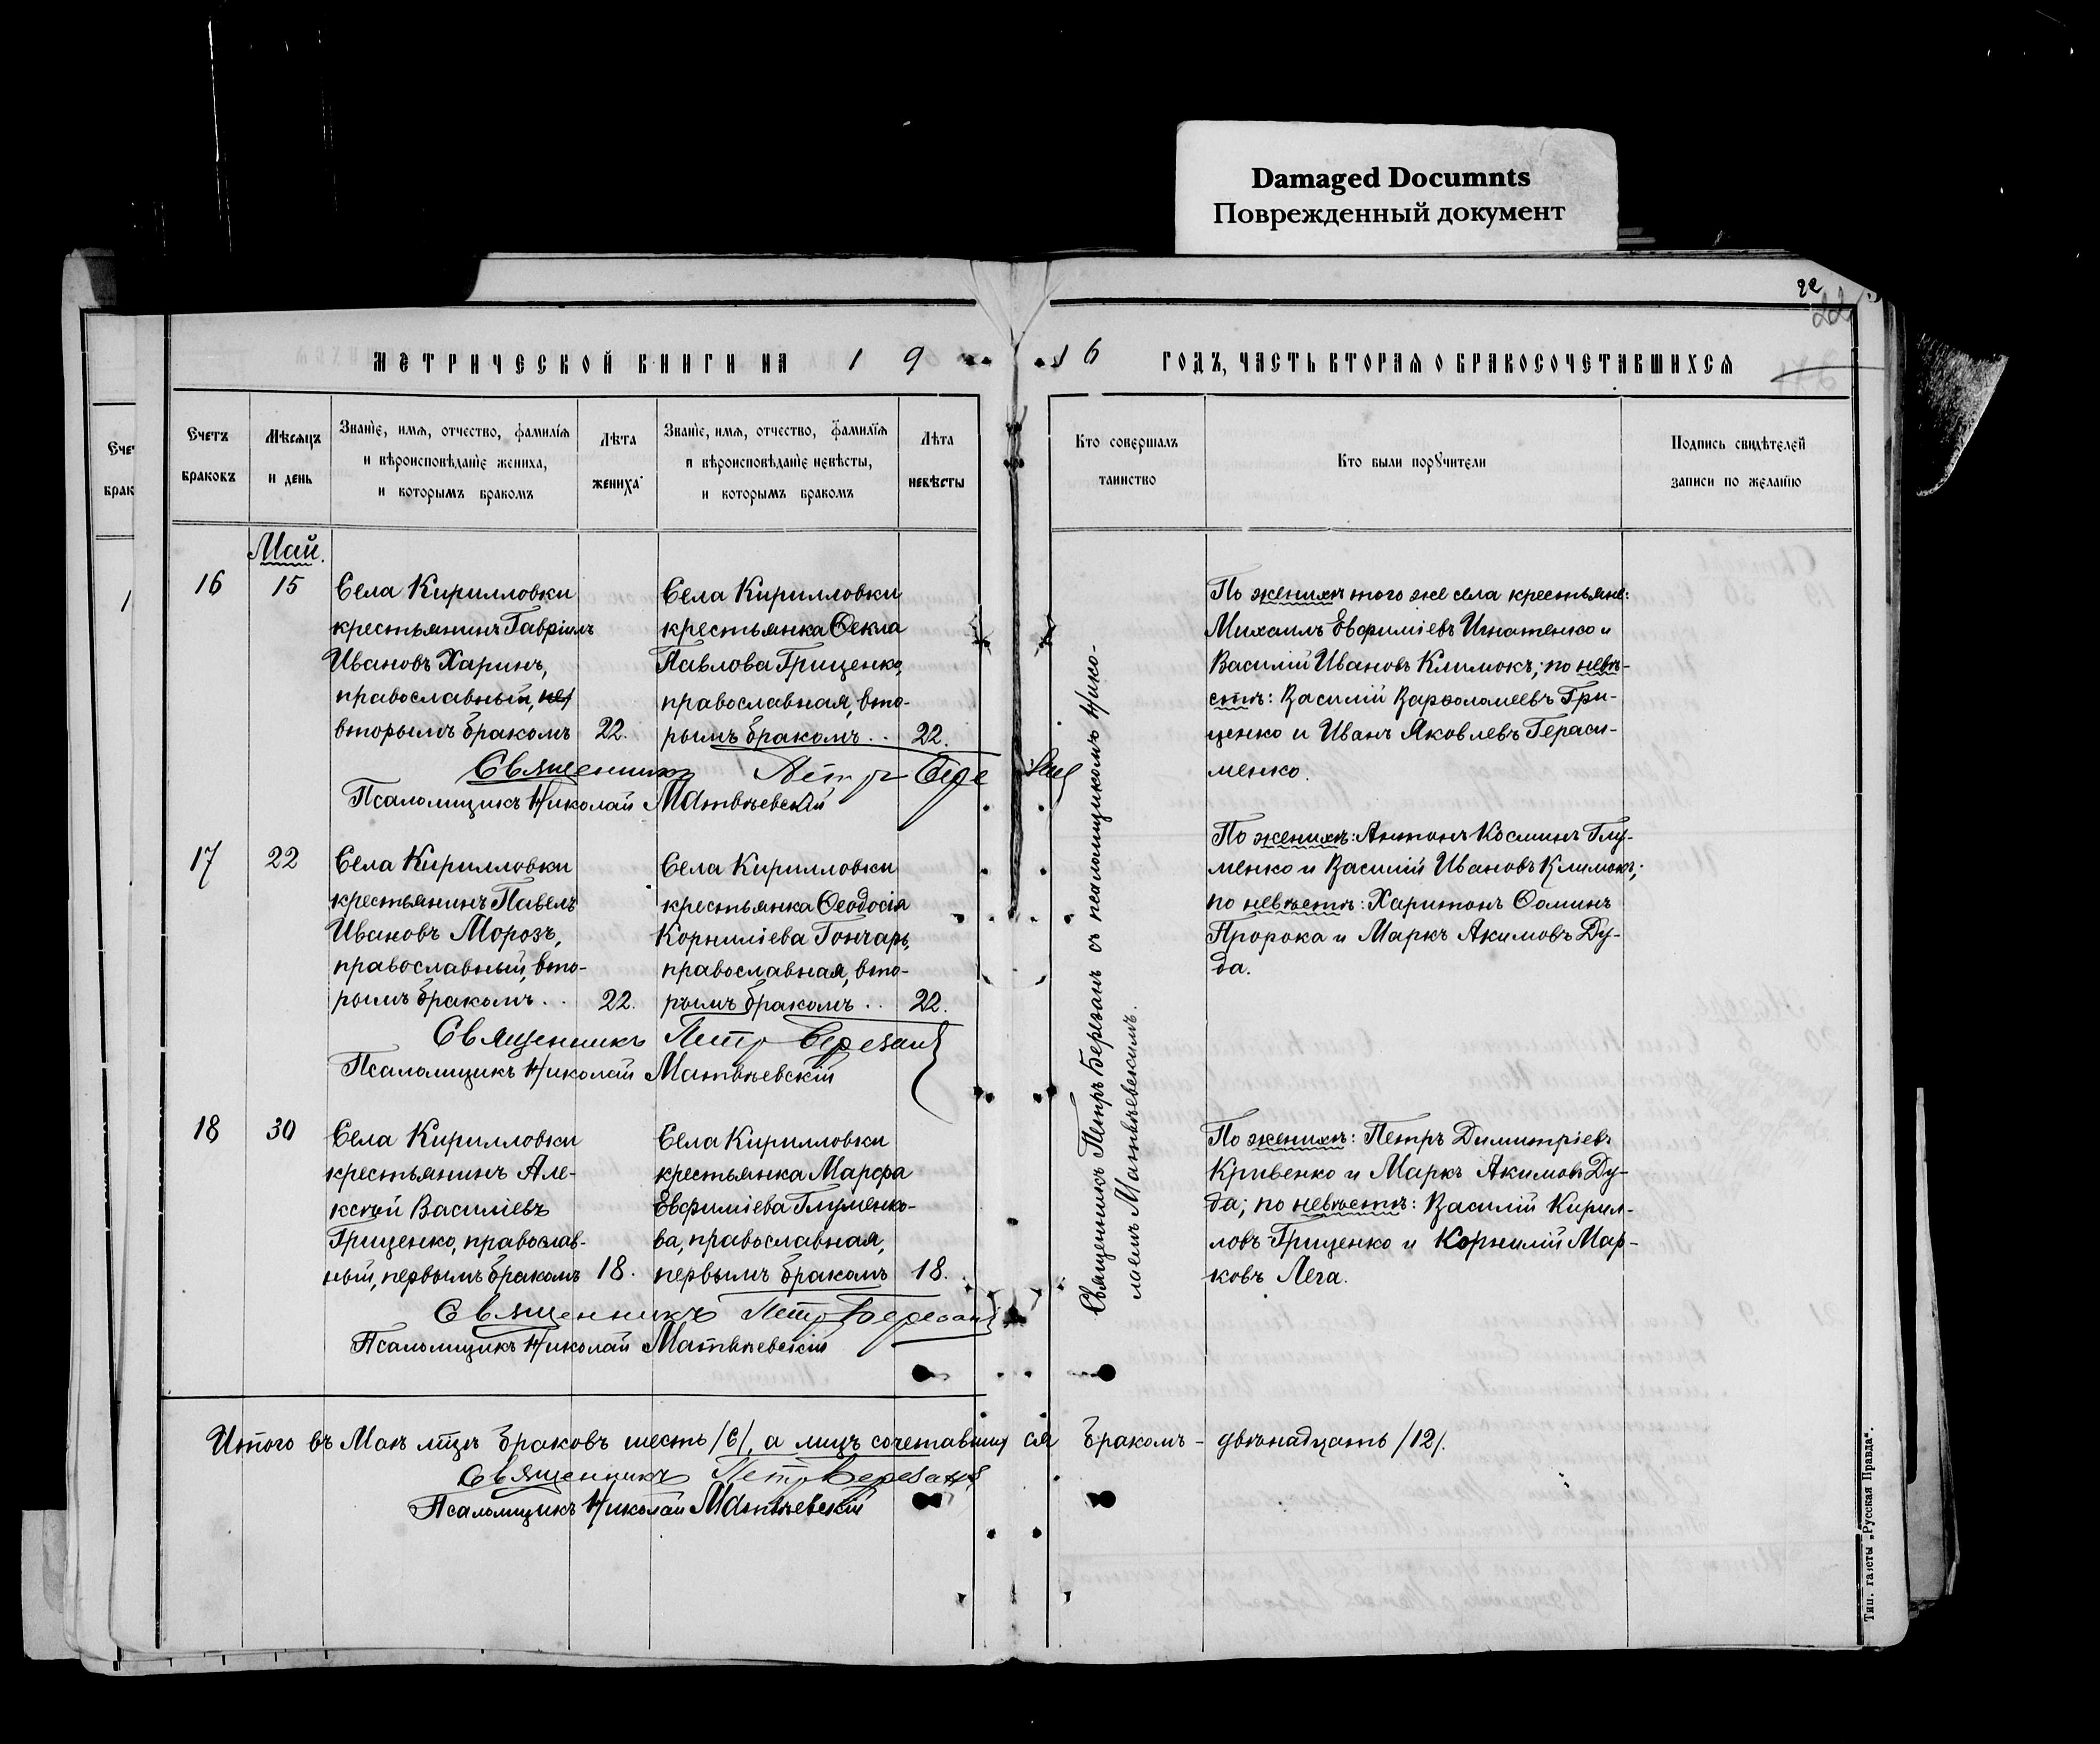 Damaged Documnts
Поврежденный документ
22
МЕТРИЧЕСКОЙ КНИГИ НА 19
16 ГОДЪ, ЧАСТЬ ВТОРАЯ О БРАКОСОЧЕТАВШИХСЯ
Счетъ
браковъ
Мѣсяцъ
и день
Званіе, имя, отчество, фамилія
и вѣроисповѣданіе жениха,
и которымъ бракомъ
Лѣта
жениха
Званіе, имя, отчество, фамилія
и вѣроисповѣданіе невѣсты,
и которымъ бракомъ
Лѣта
невѣсты
Кто совершалъ
таинство
Кто были поручители
Подпись свидѣтелей
записи по желанію
Май.
16
15
Села Кирилловки
крестьянинъ Гавріилъ
Ивановъ Харинъ,
православный,
вторымъ бракомъ
22.
Села Кирилловки
крестьянка Ѳекла
Павлова Гриценко,
православная, вто-
рымъ бракомъ..
22.
По женихѣ того же села крестьяне:
Михаилъ Евфиміевъ Игнатенко и
Василій Ивановъ Климокъ; по невѣ-
стѣ: Василій Варѳоломеевъ Гри-
ценко и Иванъ Яковлевъ Гераси-
менко.
Священникъ Петръ Березан
Псаломщикъ Николай Матвѣевскій
17
22
Села Кирилловки
крестьянинъ Павелъ
Ивановъ Морозъ,
православный, вто-
рымъ бракомъ..
22.
Села Кирилловки
крестьянка Ѳеодосія
Корниліева Гончарь,
православная, вто-
рымъ бракомъ..
22.
По женихѣ: Антонъ Косминъ Глу-
менко и Василій Ивановъ Климокъ;
по невѣстѣ: Харитонъ Ѳоминъ
Пророка и Маркъ Акимовъ Ду-
да.
Священникъ Петръ Березан
Псаломщикъ Николай Матвѣевскій
18
30
Села Кирилловки
крестьянинъ Але-
ксѣй Василіевъ
Гриценко, православ-
ный, первымъ бракомъ
18.
Села Кирилловки
крестьянка Марѳа
Евфиміева Глуменко-
ва, православная,
первымъ бракомъ
18.
По женихѣ: Петръ Димитріевъ
Кривенко и Маркъ Акимовъ Ду-
да; по невѣстѣ: Василій Кирил-
ловъ Гриценко и Корнилій Мар-
ковъ Лега.
Священникъ Петръ Березан
Псаломщикъ Николай Матвѣевскій
Священникъ Петръ Березанъ съ псаломщикомъ Нико-
лаемъ Матвѣевскимъ.
Итого въ Маѣ мцѣ браковъ шесть /6/, а лицъ сочетавшихся бракомъ - двѣнадцать /12/.
Священникъ Петръ Березан
Псаломщикъ Николай Матвѣевскій
Тип. газеты „Русская Правда".